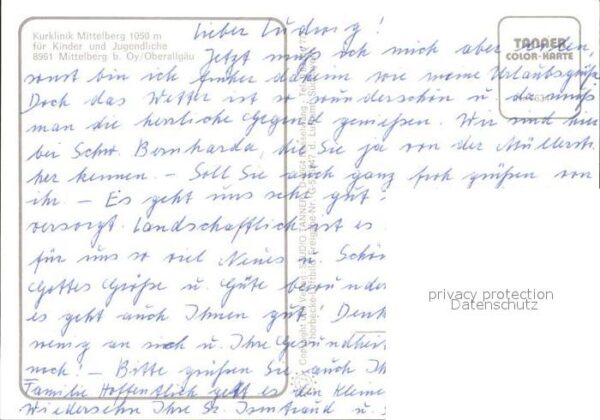 Kurklinik Mittelberg 1050 m
für Kinder und Jugendliche
8961 Mittelberg b. Oy/Oberallgäu
TANNER
COLOR-KARTE
Lieber Ludwig!
Jetzt muß ich mich aber
sonst bin ich früher daheim wie meine Urlaubsgrüße
Doch das Wetter ist so wunderschön u. da muß
man die herrliche Gegend genießen. Wir sind hier
bei Schw. Bernharda, die Sie ja von der Müllerstr.
her kennen. – Soll Sie auch ganz froh grüßen von
ihr – Es geht uns sehr gut
versorgt. Landschaftlich ist es
für uns so viel Neues u. Schön
Gottes Größe u. Güte bewunder
es geht auch Ihnen gut! Denk
wenig an sich u. Ihre Gesundheit
noch! – Bitte grüßen Sie auch Ih
Familie Hoffentlich geht es den Kleine
Wiedersehn Ihre Sr. Irmtraud u.
privacy protection
Datenschutz